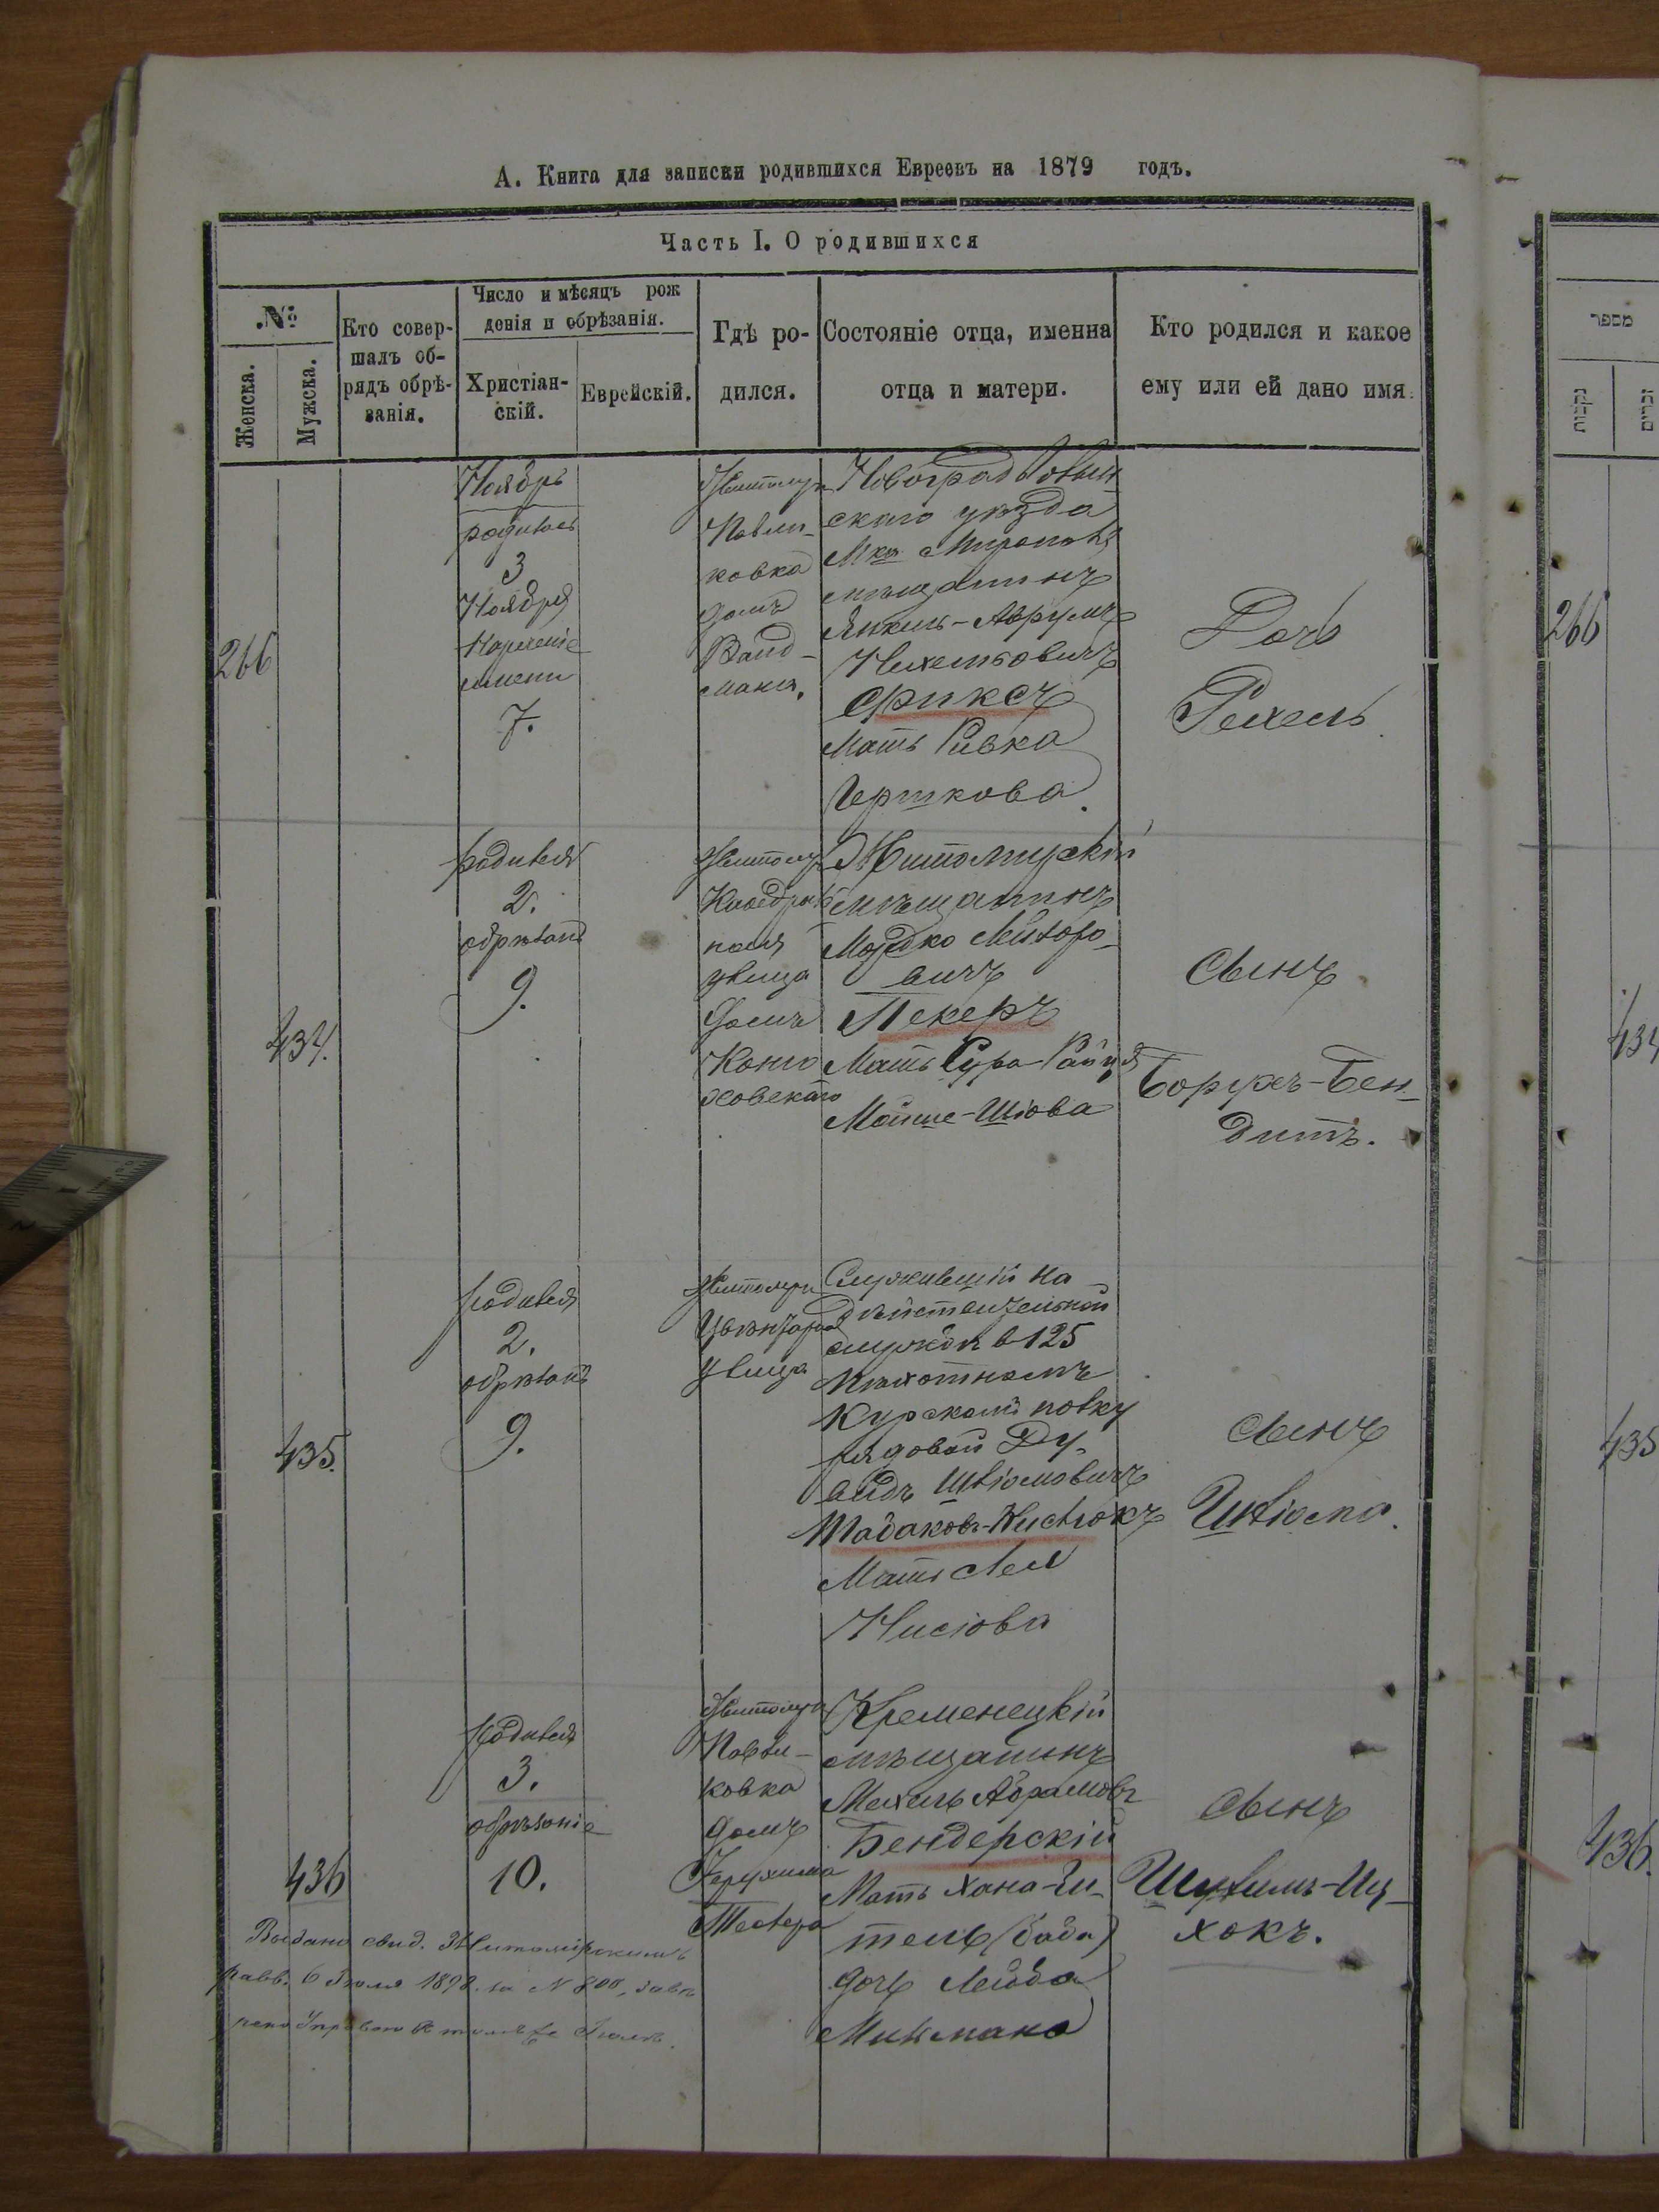 А. Книга для записки родившихся Евреевъ на 1879 годъ.
Часть I. О родившихся
№
Женска.
Мужска.
Кто совер-
шалъ об-
рядъ обрѣ-
занія.
Число и мѣсяцъ рож
денія и обрѣзанія.
Христіан-
скій.
Еврейскій.
Гдѣ ро-
дился.
Состояніе отца, именна
отца и матери.
Кто родился и какое
ему или ей дано имя.
266
Ноябрь
родилась
3
Ноября
Нареченіе
имени
7.
Житомиръ
Павли-
ковка
домъ
Ванд-
мана.
Новоградволын
скаго уѣзда
Мка Мирополя
мѣщанинъ
Янкель-Аврумъ
Фиксъ
Мать Ривка
Гершкова
Дочь
Рехель
434.
родился
2.
обрѣзанъ
9.
Житомиръ
улица
домъ
Житомирскій
мѣщанинъ
Мордко
вичъ
Пекеръ
Мать Сура-Райця
Мойше-Шіова
Сынъ
Борухъ-Бен-
дитъ.
435.
родился
2.
обрѣзанъ
9.
Житомиръ
улица
Служившій на
дѣйствительной
службѣ в 125
пѣхотномъ
Курскомъ полку
рядовой Ду-
видъ Шліомовичъ
Мать Лея
Нисіова
Сынъ
Шліома.
436
родился
3.
обрѣзаніе
10.
Житомиръ
Павли-
ковка
домъ
Герухима
Кременецкій
мѣщанинъ
Мехель Абрамовъ
Бендерскій
Мать Хана-Ги-
тель (баба)
дочь Лейба
Сынъ
Шулимъ-Иц-
хокъ.
Выдано свид. Житомірскимъ
равв. 6 Іюля 1898 за № 800,
266
434
435
436.
מספר
נקבות
זכרים